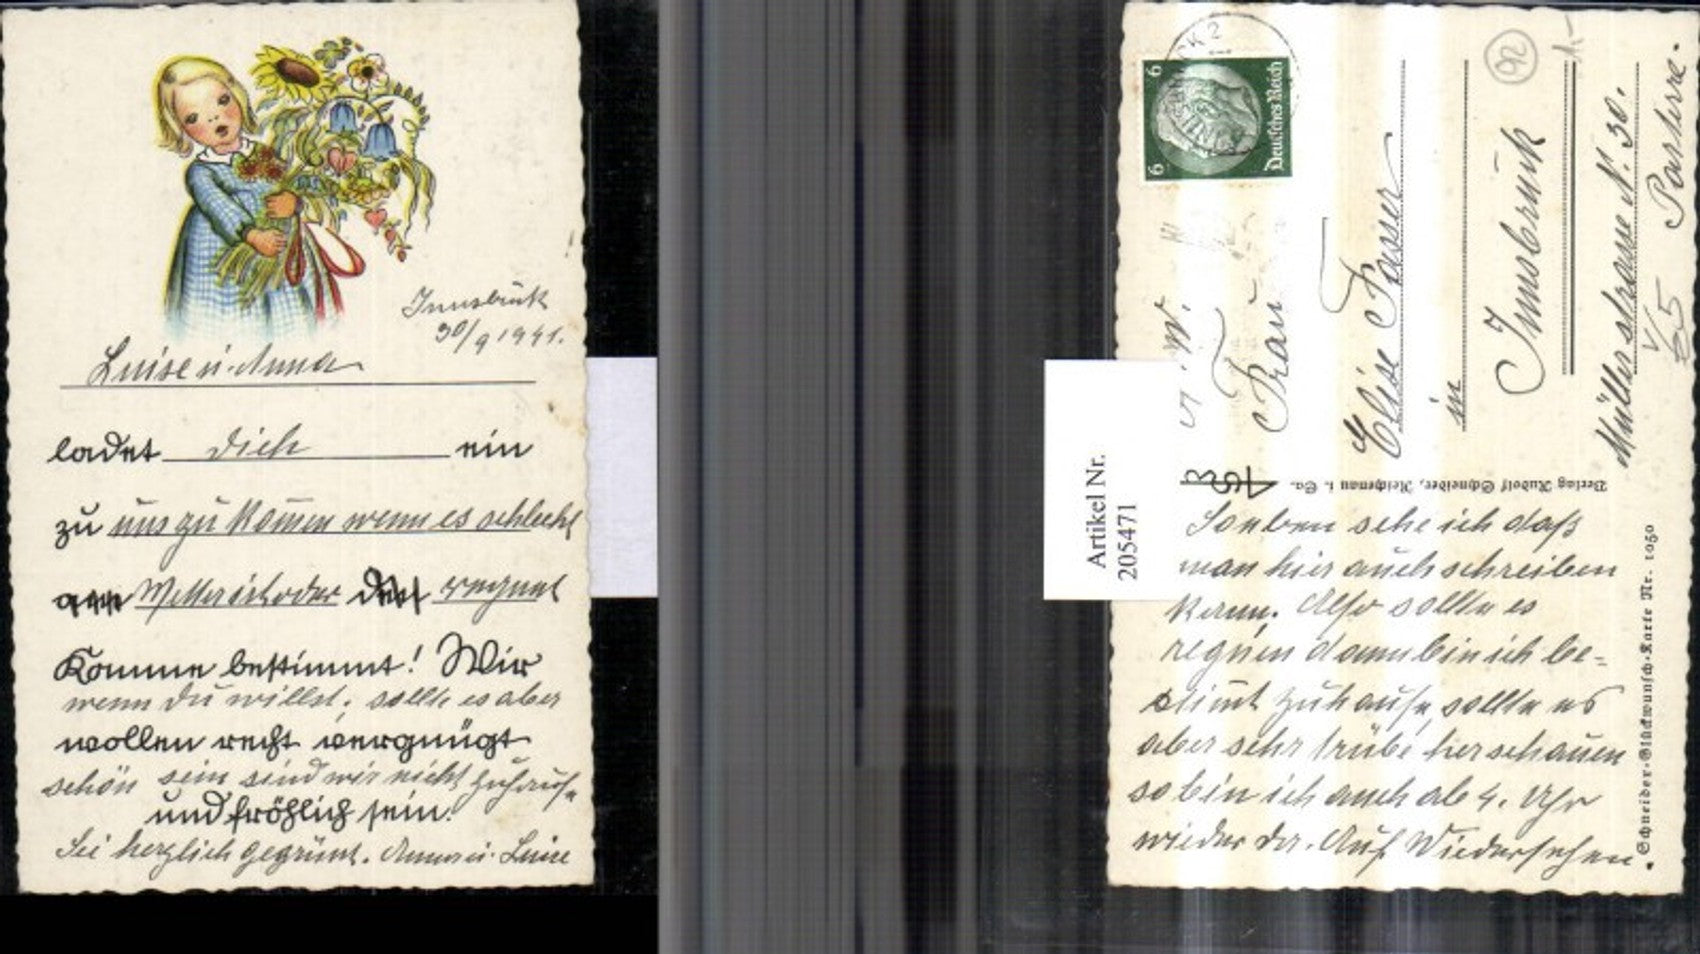 Innsbruck
30/9 1941.
Luise u. Anna
ladet dich ein
zu uns zu kommen wenn es schlecht
Wetter ist oder regnet
Komme bestimmt! Wir
wenn du willst; sollte es aber
wollen recht vergnügt
schön sein sind wir nicht zuhause
und fröhlich sein!
Sei herzlich gegrüsst. Anna u. Luise
Artikel Nr.
2054 71
6 6
Deutsches Reich
92
1.-
Frau
Elise Fasser
in
Innsbruck
Müllerstrasse N. 30.
Parterre.
Verlag Rudolf Schneider, Reichenau i. Sa.
Schneider-Glückwunsch-Karte Nr. 1050
Soeben sehe ich daß
man hier auch schreiben
kann. Also sollte es
regnen dann bin ich be-
stimmt zuhause, sollte es
aber sehr trübe herschauen
so bin ich auch ab 4. Uhr
wieder da. Auf Wiedersehen.